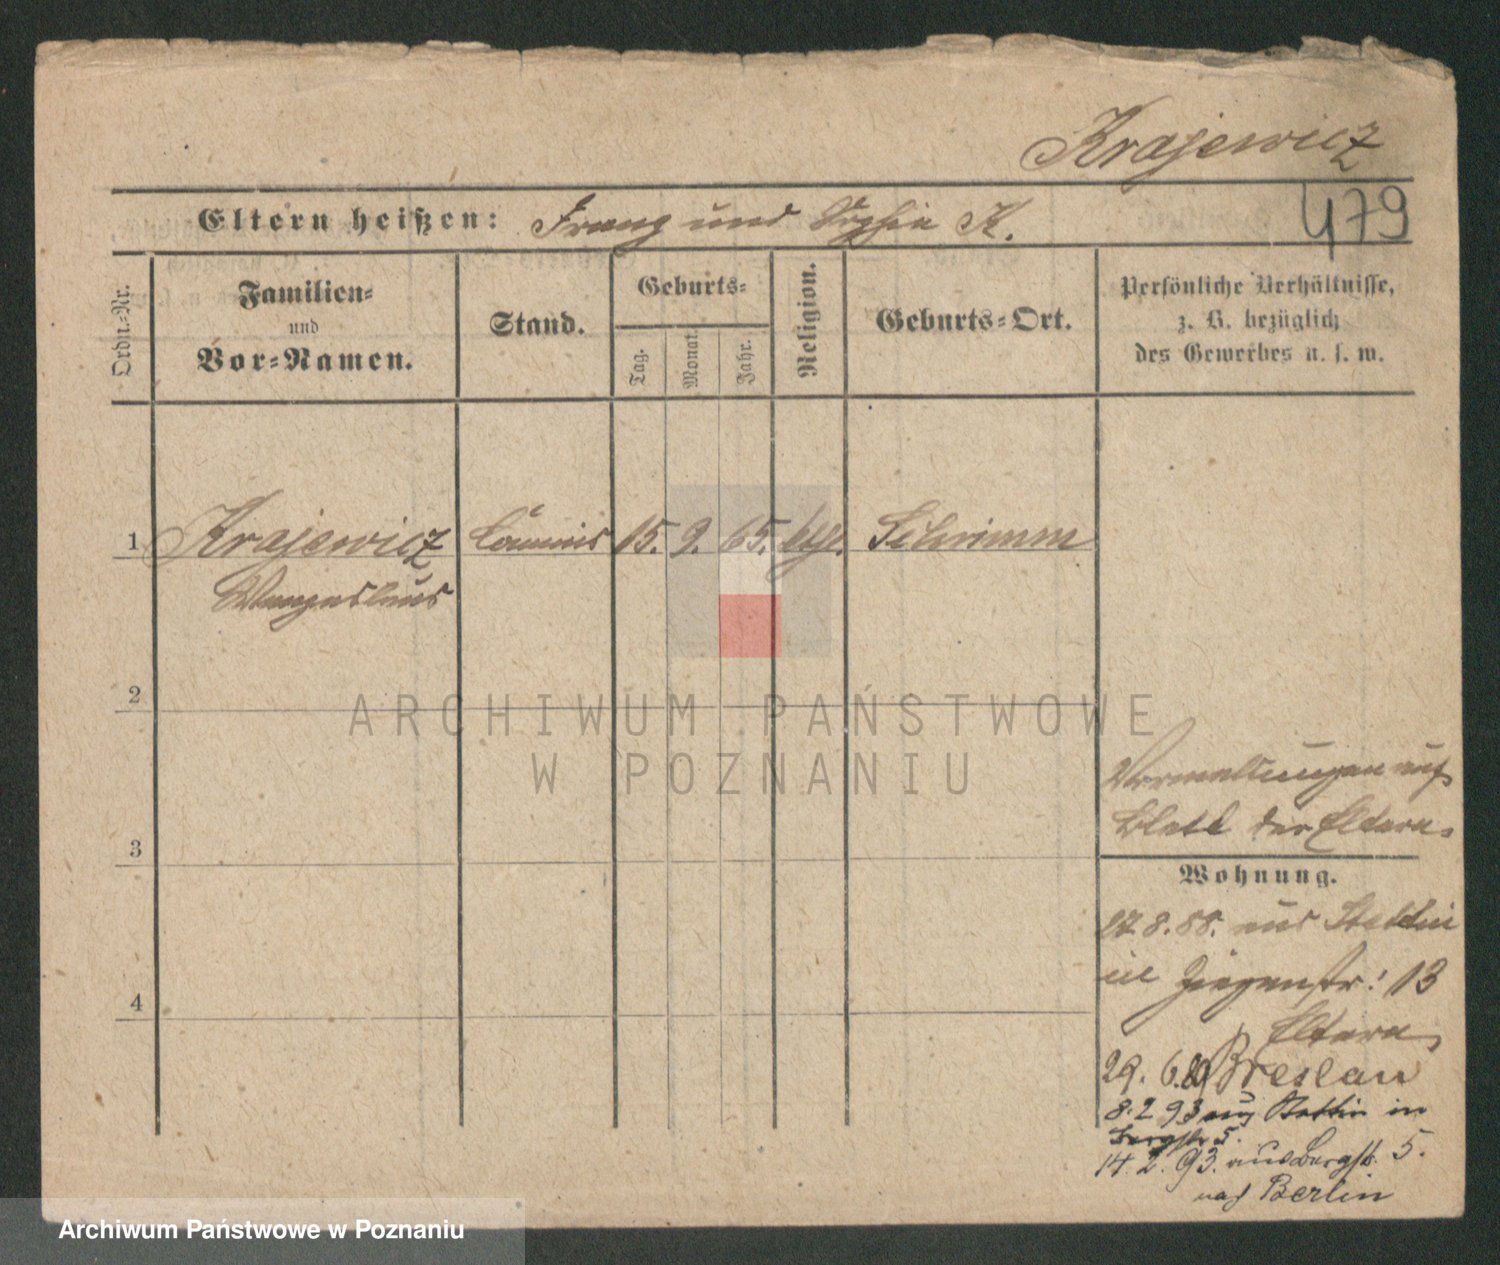 Krajewicz
479
Eltern heißen: Franz und Sophie K.
Ordn.-Nr.
Familien-
und
Vor-Namen.
Stand.
Geburts-
Tag.
Monat.
Jahr.
Religion.
Geburts-Ort.
Persönliche Verhältnisse,
z. B. bezüglich
des Gewerbes u. s. w.
1 Krajewicz Commis 15. 9. 65. Schrimm
2
3
4
auf
Blatt der Eltern.
Wohnung.
27.8.88. aus Stettin
in Ziegenstr: 13
Eltern
29. 6. Breslau
8.2 93 aus Stettin in
Bergstr 5.
14. 2. 93. aus Bergstr. 5.
nach Berlin
ARCHIWUM PAŃSTWOWE
W POZNANIU
Archiwum Państwowe w Poznaniu